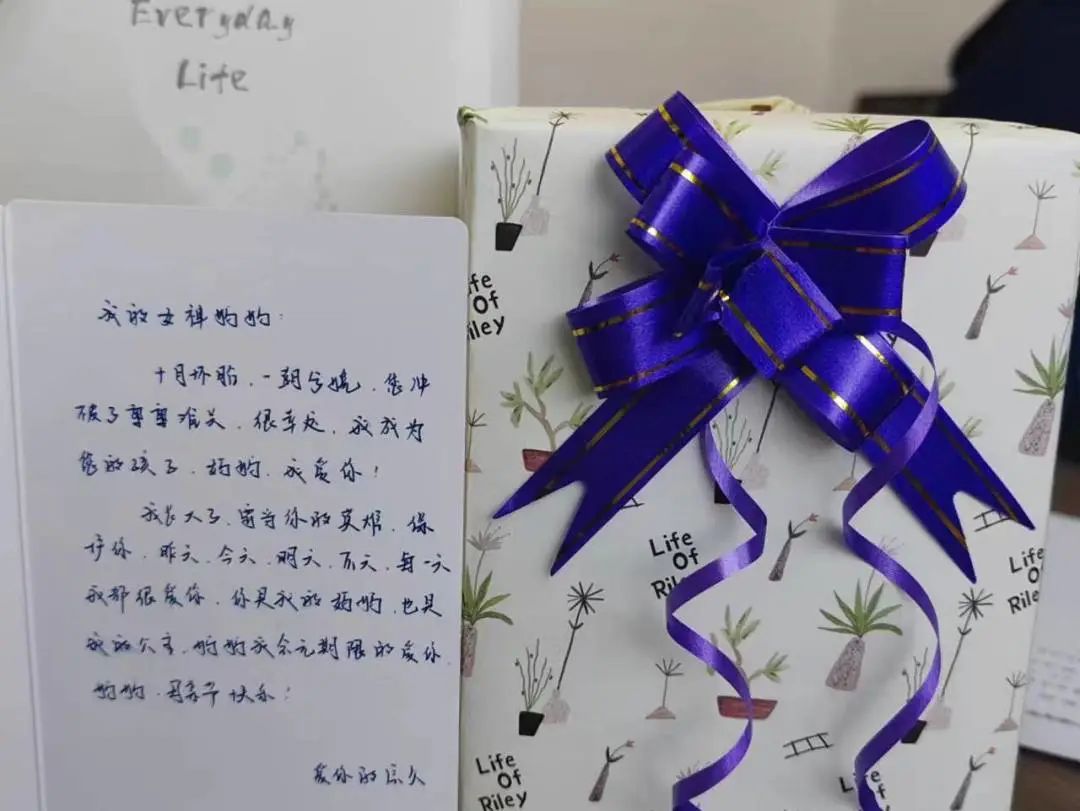 Everyday
Life
我的女神妈妈：
十月怀胎，一朝分娩，您冲
破了重重难关，很幸运，我成为
您的孩子，妈妈，我爱你！
我长大了，要当你的英雄，保
护你，昨天，今天，明天，后天，每一天
我都很爱你，你是我的妈妈，也是
我的公主，妈妈我会无期限的爱你，
妈妈，母亲节快乐！
爱你的
ife
Of
iley
Life
Of
Riley
Life
Of
Rile
Life
Of
Riley
Life
Of